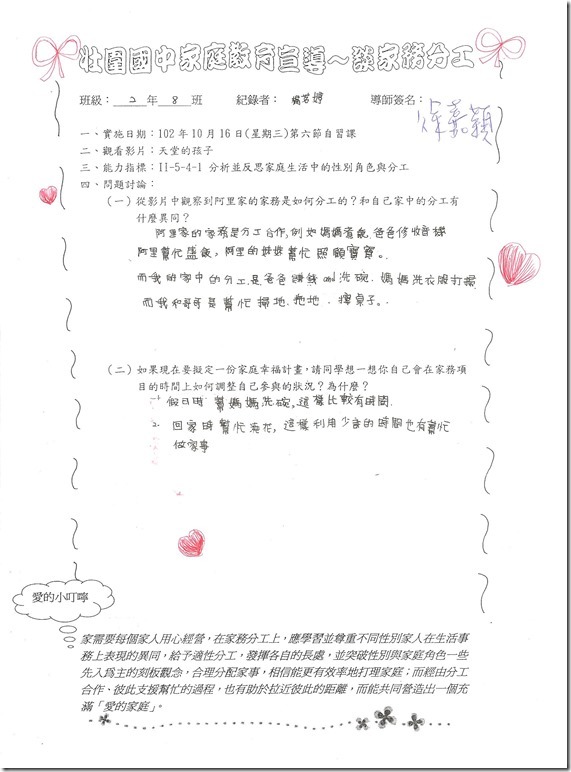 壯圍國中家庭教育宣導～談家務分工
班級：2年8班 紀錄者： 導師簽名：
一、實施日期：102年10月16日(星期三)第六節自習課
二、觀看影片：天堂的孩子
三、能力指標：II-5-4-1 分析並反思家庭生活中的性別角色與分工
四、問題討論：
(一)從影片中觀察到阿里家的家務是如何分工的？和自己家中的分工有
什麼異同？
阿里家的家務是分工合作,例如媽媽煮飯,爸爸修收音機
阿里幫忙盛飯，阿里的妹妹幫忙照顧寶寶。
而我的家中的分工是爸爸賺錢and洗碗.媽媽洗衣服打掃
而我和哥哥是幫忙掃地.拖地.擦桌子。
(二)如果現在要擬定一份家庭幸福計畫，請同學想一想你自己會在家務項
目的時間上如何調整自己參與的狀況？為什麼？
1. 假日時幫媽媽洗碗,這樣比較有時間.
2. 回家時幫忙澆花，這樣利用少許的時間也有幫忙
做家事
愛的小叮嚀
家需要每個家人用心經營，在家務分工上，應學習並尊重不同性別家人在生活事
務上表現的異同，給予適性分工，發揮各自的長處，並突破性別與家庭角色一些
先入為主的刻板觀念，合理分配家事，相信能更有效率地打理家庭；而經由分工
合作、彼此支援幫忙的過程，也有助於拉近彼此的距離，而能共同營造出一個充
滿「愛的家庭」。